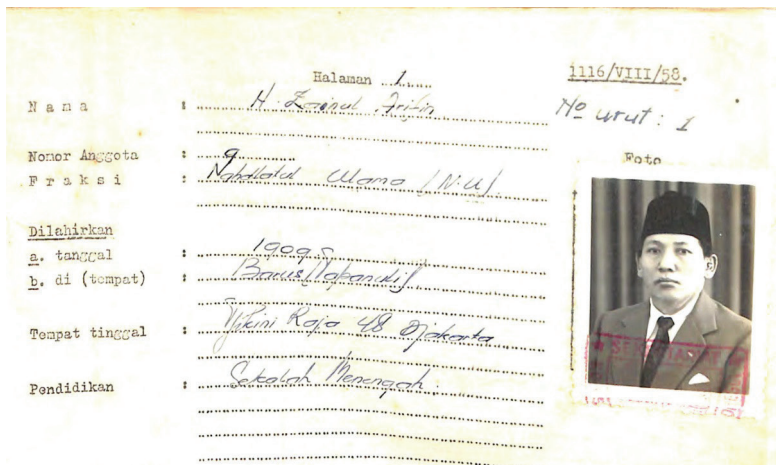 Halaman 1
1116/VIII/58.
Nama : H. Zainul Arifin
No urut : 1
Nomor Anggota : 9
Foto
Fraksi : Nahdlatul Ulama (N.U)
Dilahirkan
a. tanggal : 1909
b. di (tempat) : Barus (Tapanuli)
Tempat tinggal : Tjikini Raja 48 Djakarta
Pendidikan : Sekolah Menengah.
SEKRETARIAT